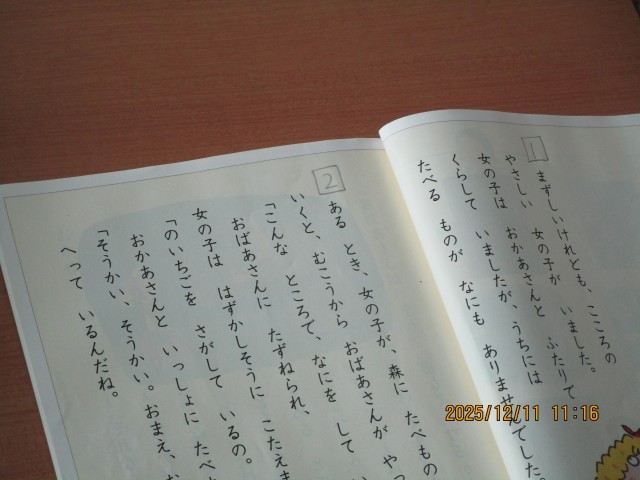 1
まずしいけれども、こころの
やさしい 女の子が いました。
女の子は おかあさんと ふたりで
くらして いましたが、うちには
たべる ものが なにも ありませんでした。
2
ある とき、女の子が、森に たべもの
いくと、むこうから おばあさんが やっ
「こんな ところで、なにを して
おばあさんに たずねられ、
女の子は はずかしそうに こたえま
「のいちごを さがして いるの。
おかあさんと いっしょに たべ
「そうかい、そうかい。おまえ、
へって いるんだね。
2025/12/11 11:16